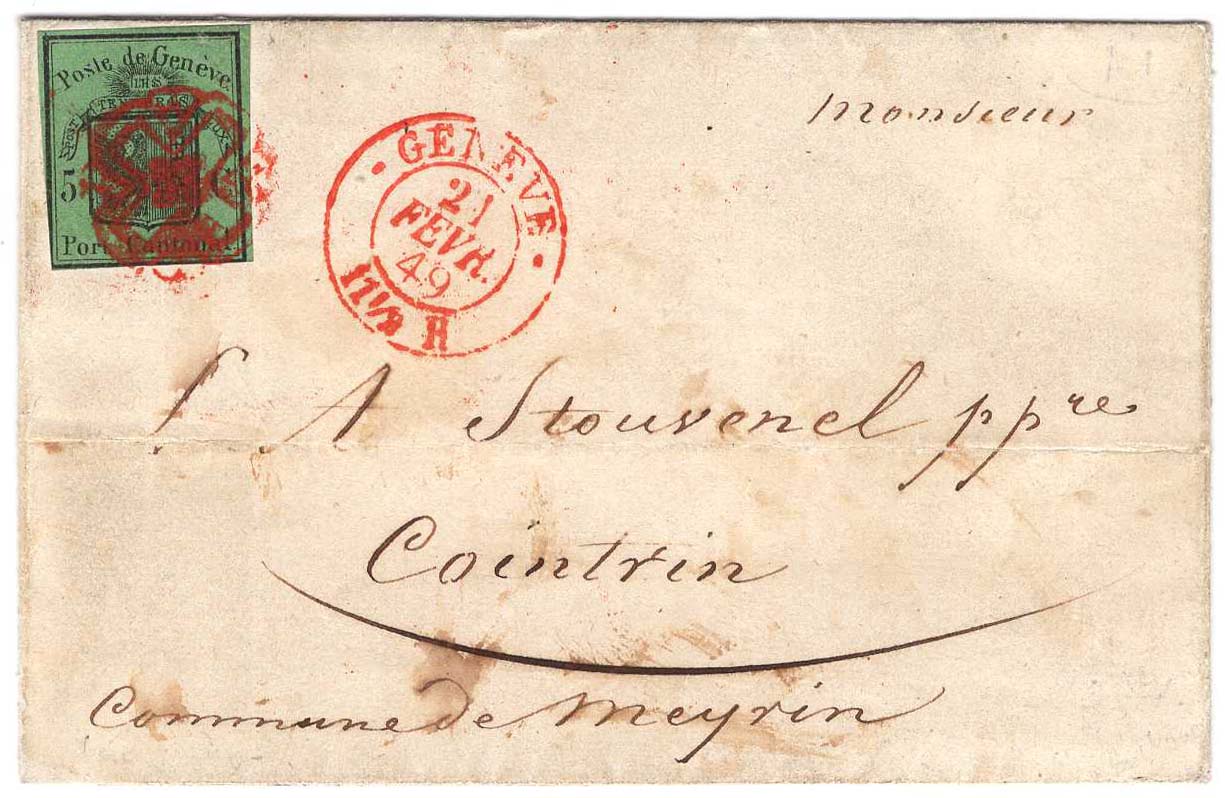 Poste de Genève
IHS
POST TENEBRAS LUX
5 C
Port Cantonal
GENEVE
21
FEVR.
49
11½ H
Monsieur
J. A Stouvenel ppre
Cointrin
Commune de Meyrin